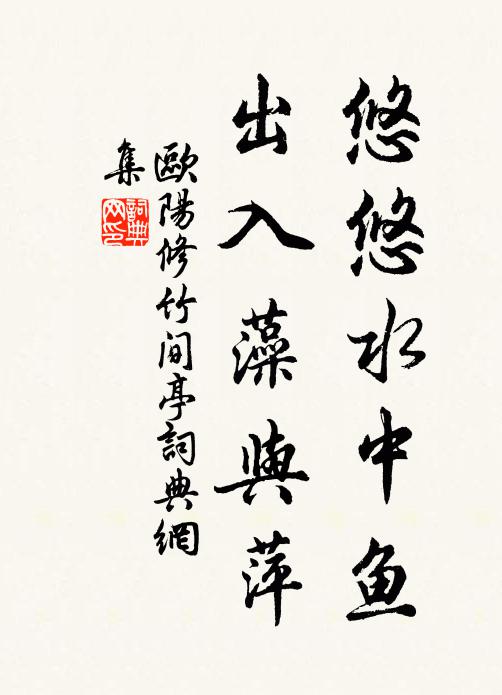 悠悠水中鱼
出入藻與萍
歐陽修竹间亭詞典網
集
詞典網印